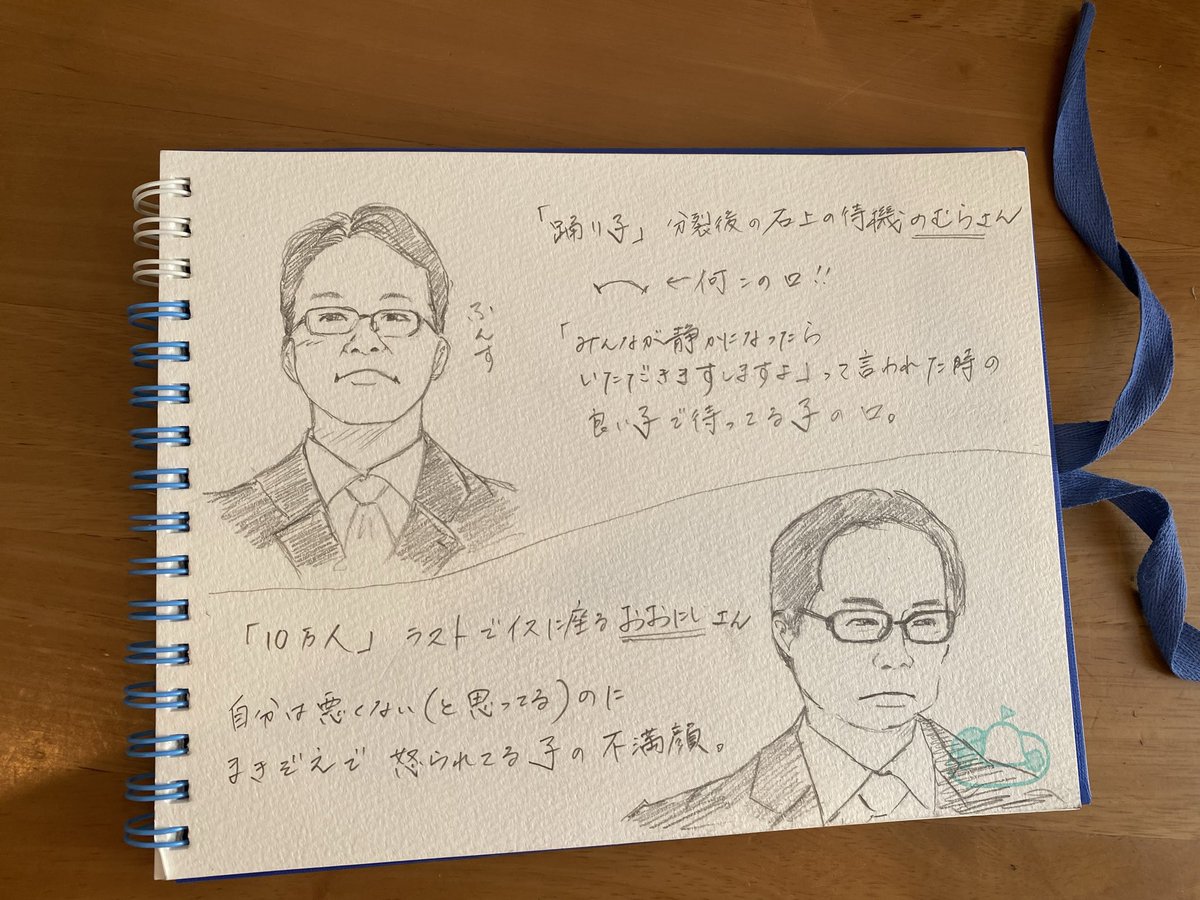 「踊り子」分裂後の石上の待機のむらさん
←何この口!!
ふんす
「みんなが静かになったら
いただきますしますよ」って言われた時の
良い子で待ってる子の口。
「10万人」ラストでイスに座るおおにしさん
自分は悪くない(と思ってる)のに
まきぞえで怒られてる子の不満顔。